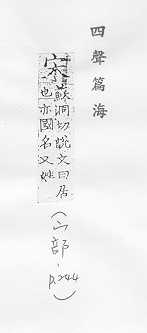 四聲篇海
宋蘇洞切說文曰居
也亦國名又姓
(宀部, p.244)